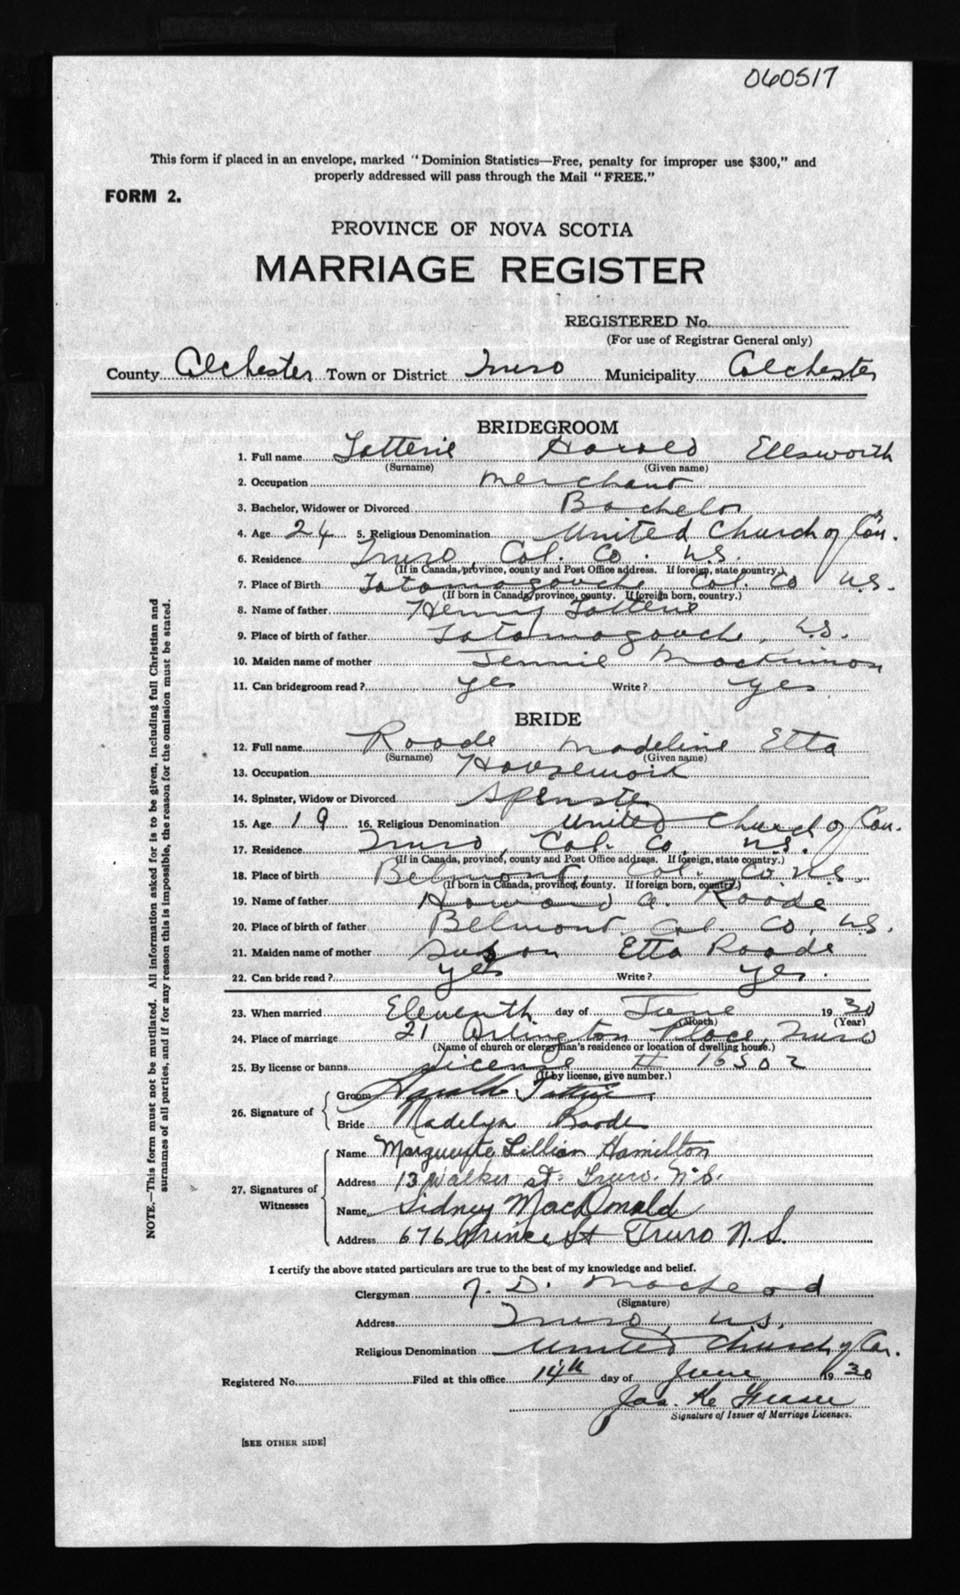 060517
This form if placed in an envelope, marked "Dominion Statistics—Free, penalty for improper use $300," and
properly addressed will pass through the Mail "FREE."
FORM 2.
PROVINCE OF NOVA SCOTIA
MARRIAGE REGISTER
REGISTERED No.
(For use of Registrar General only)
County Colchester Town or District Truro Municipality Colchester
BRIDEGROOM
1. Full name Tattrie Harold Ellsworth
(Surname) (Given name)
2. Occupation Merchant
3. Bachelor, Widower or Divorced Bachelor
4. Age 24 5. Religious Denomination United Church of Can.
6. Residence Truro, Col. Co. N.S.
(If in Canada, province, county and Post Office address. If foreign, state country.)
7. Place of Birth Tatamagouche Col. Co N.S.
(If born in Canada, province, county. If foreign born, country.)
8. Name of father Henry Tattrie
9. Place of birth of father Tatamagouche, N.S.
10. Maiden name of mother Jennie MacKinnon
11. Can bridegroom read? yes Write? yes
BRIDE
12. Full name Roode Madeline Etta
(Surname) (Given name)
13. Occupation Housemaid
14. Spinster, Widow or Divorced Spinster
15. Age 19 16. Religious Denomination United Church of Can.
17. Residence Truro, Col. Co. N.S.
(If in Canada, province, county and Post Office address. If foreign, state country.)
18. Place of birth Belmont, Col. Co N.S.
(If born in Canada, province, county. If foreign born, country.)
19. Name of father Howard A. Roode
20. Place of birth of father Belmont, Col. Co, N.S.
21. Maiden name of mother Susan Etta Roode
22. Can bride read? yes Write? yes.
23. When married Eleventh day of June 1930
(Month) (Year)
24. Place of marriage 21 Arlington Place, Truro
(Name of church or clergyman's residence or location of dwelling house.)
25. By license or banns License # 16502
(If by license, give number.)
26. Signature of
Groom Harold Tattrie
Bride Madelyn Roode
27. Signatures of Witnesses
Name Marguerite Lillian Hamilton
Address 13 Walker St. Truro. N.S.
Name Sidney MacDonald
Address 676 Prince St Truro N.S.
I certify the above stated particulars are true to the best of my knowledge and belief.
Clergyman D. MacLeod
(Signature)
Address Truro, N.S.
Religious Denomination United Church of Can.
Registered No. Filed at this office 14th day of June 1930
Jas. K. Fraser
Signature of Issuer of Marriage Licenses.
[SEE OTHER SIDE]
NOTE.—This form must not be mutilated. All information asked for is to be given, including full Christian and
surnames of all parties, and if for any reason this is impossible, the reason for the omission must be stated.